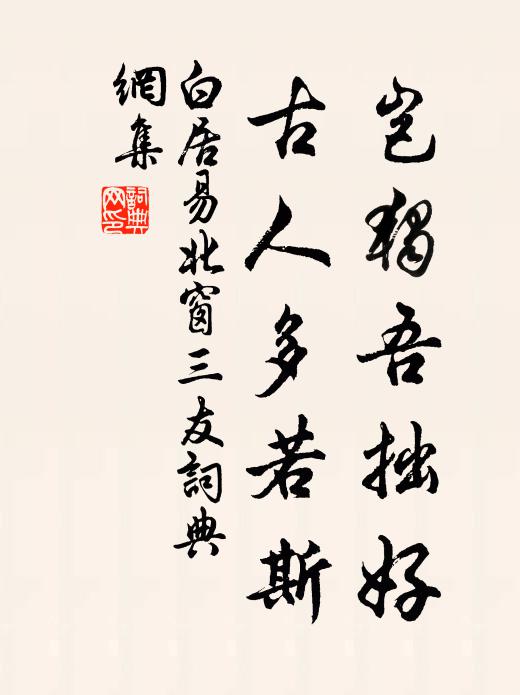 豈獨吾拙好
古人多若斯
白居易北窗三友詞典
網集
詞典
网印